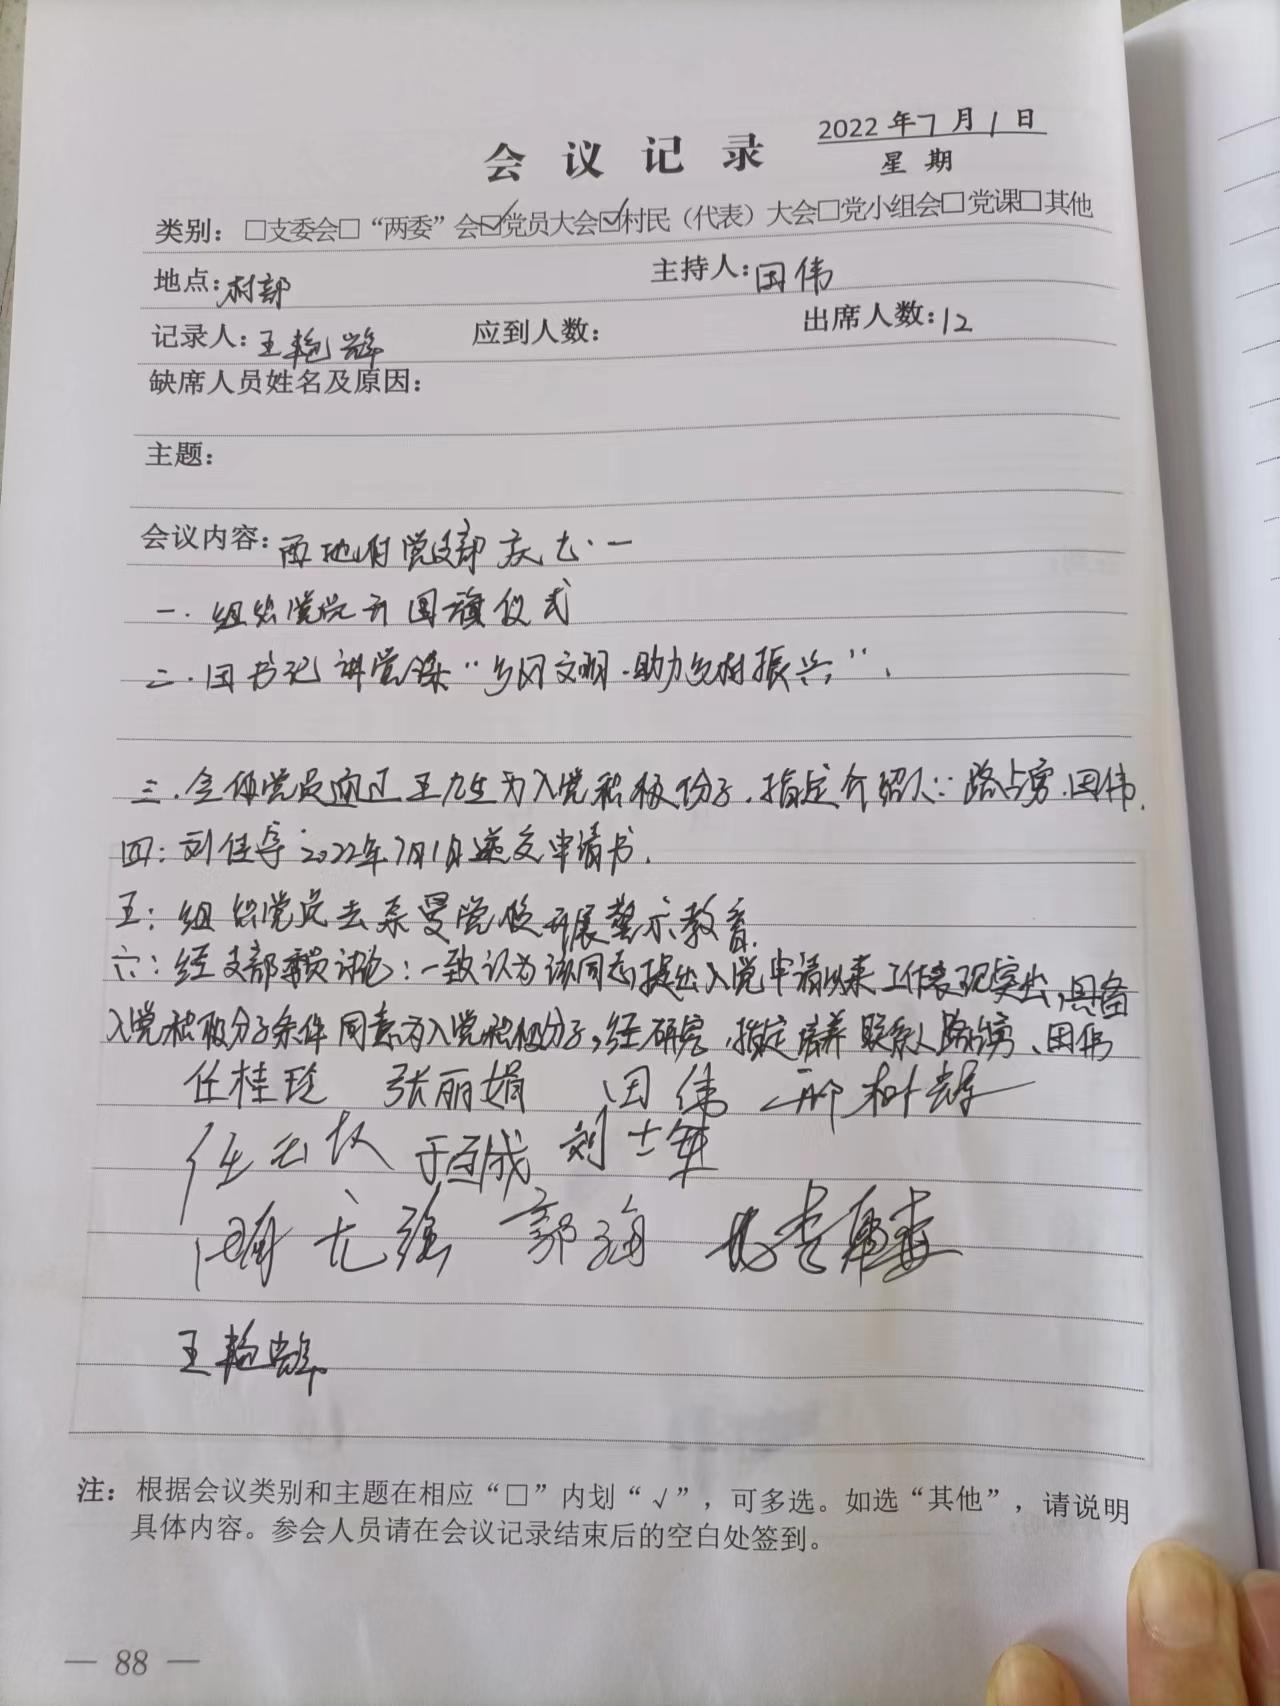 会议记录
2022年7月1日
星期
类别：□支委会□“两委”会☑党员大会☑村民（代表）大会□党小组会□党课□其他
地点：村部 主持人：田伟
记录人：王艳辉 应到人数： 出席人数：12
缺席人员姓名及原因：
主题：
会议内容：西地村党支部庆七·一
一．组织党员升国旗仪式
二．田书记讲党课“乡风文明．助力乡村振兴”．
三．全体党员通过王九生为入党积极份子．指定介绍人：路占勇．田伟．
四：刘佳 2022年7月1日递交申请书．
五：组织党员去 党校开展警示教育．
六：经支部 讨论：一致认为该同志提出入党申请以来工作表现突出，具备
入党积极分子条件同意为入党积极分子，经研究，指定培养联系人路占勇、田伟
任桂玲 张丽娟 田伟 邢树辉
任 于百成 刘士军
强 郭海
王艳辉
注：根据会议类别和主题在相应“□”内划“√”，可多选。如选“其他”，请说明
具体内容。参会人员请在会议记录结束后的空白处签到。
— 88 —